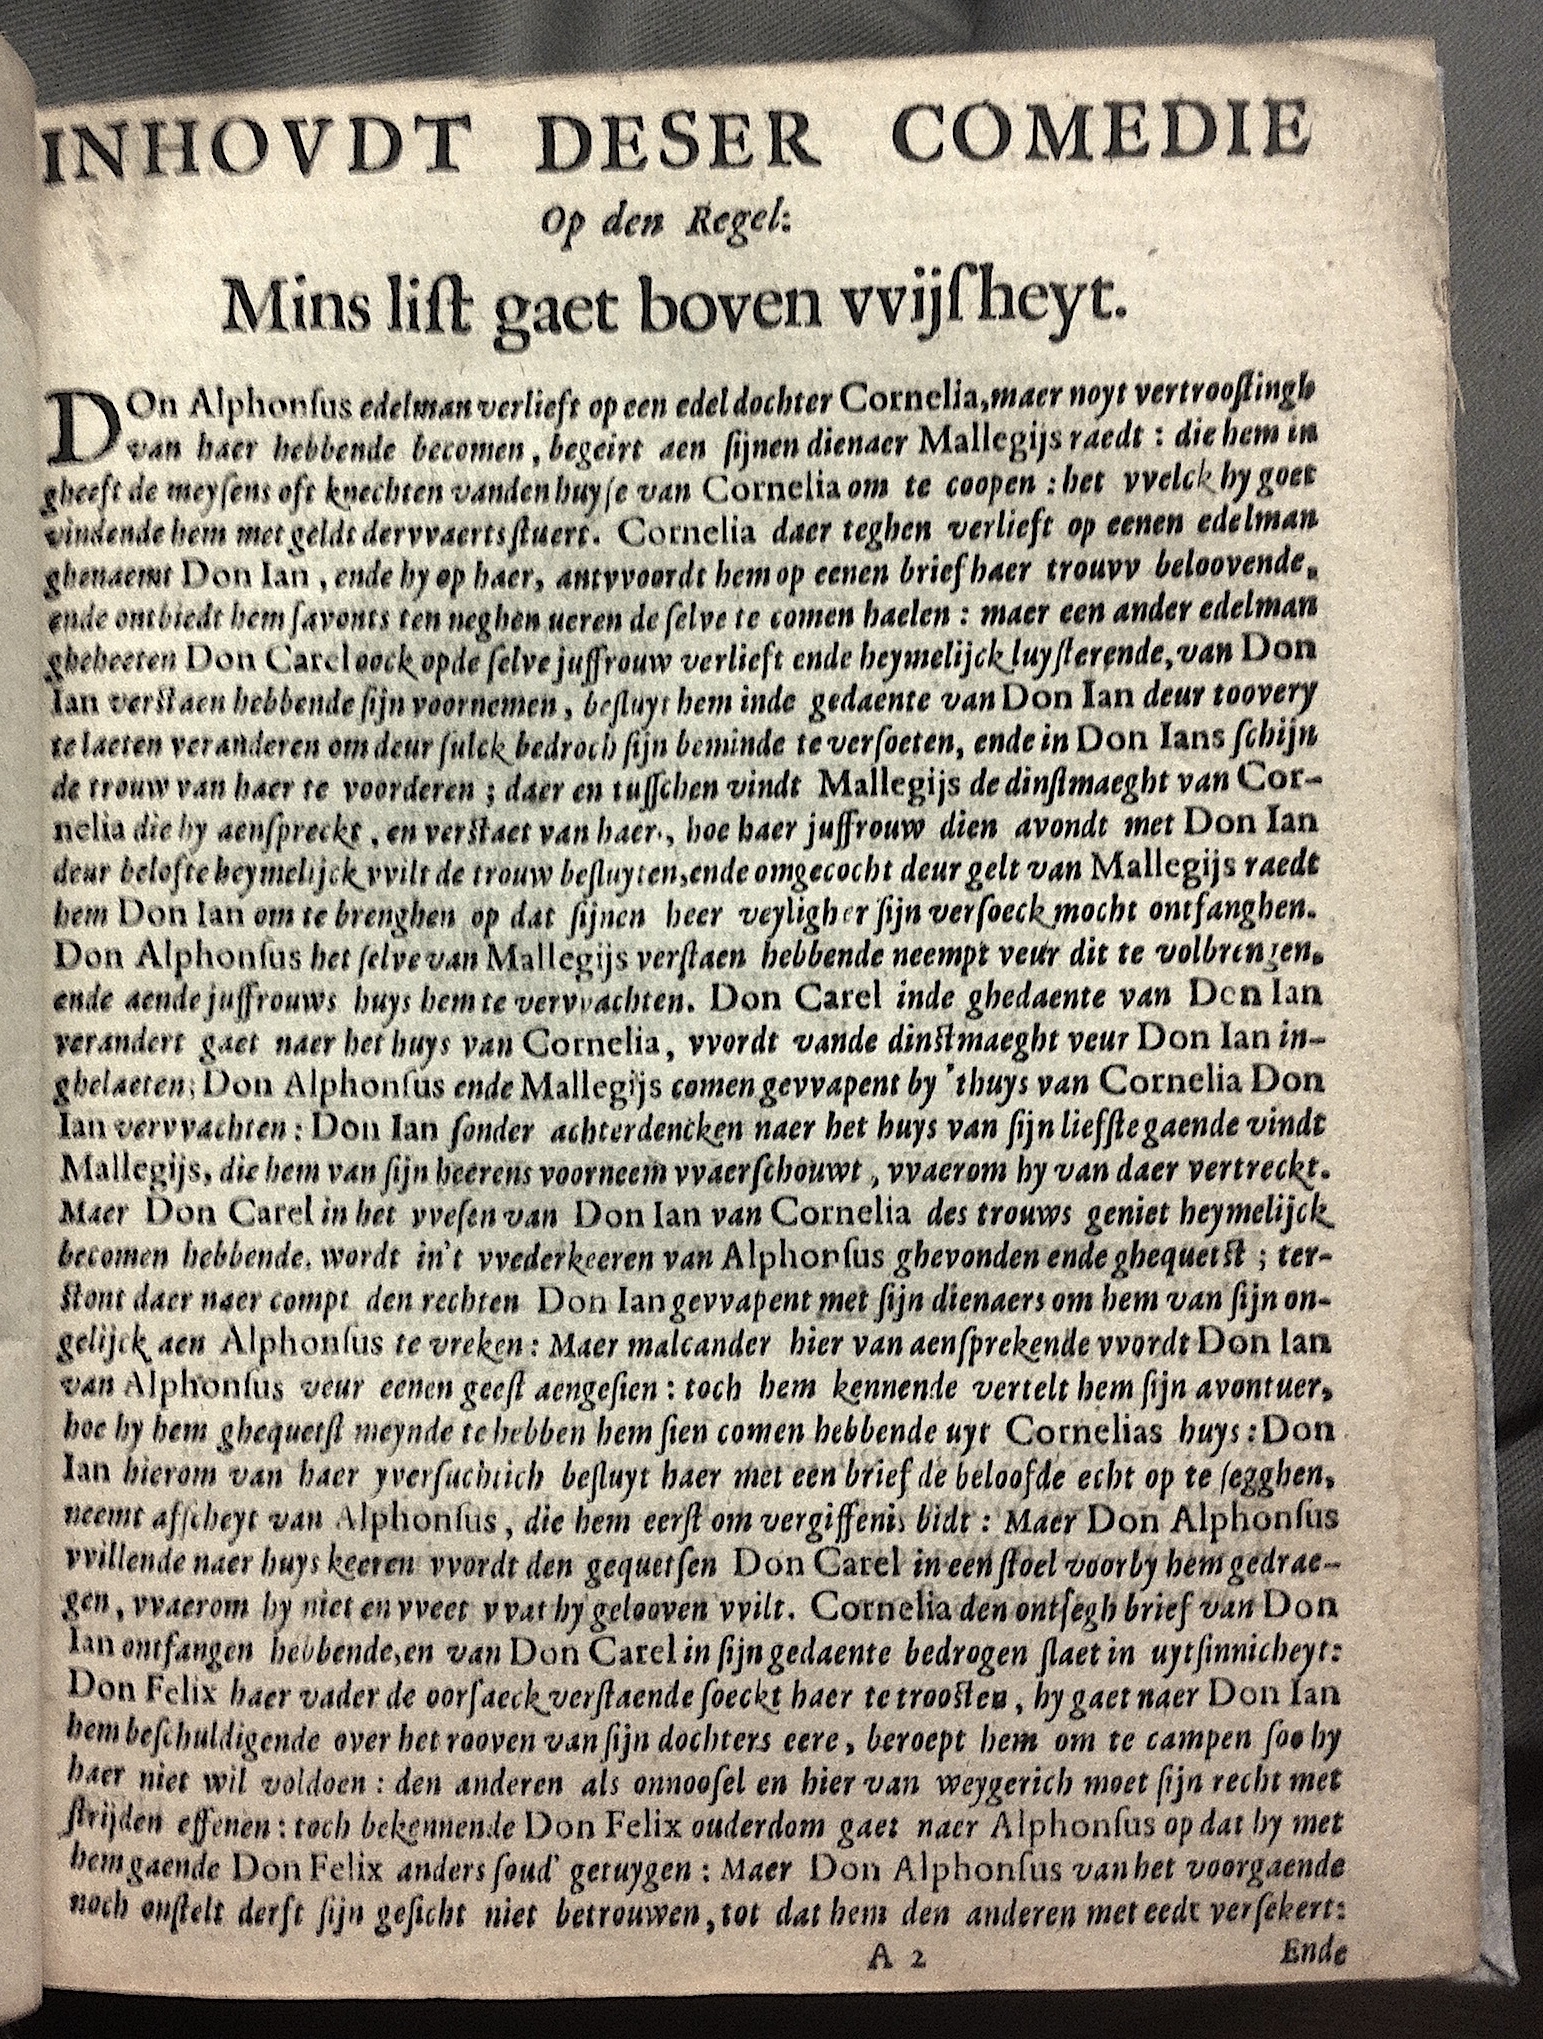 INHOVDT DESER COMEDIE
Op den Regel:
Mins liſt gaet boven vvijſheyt.
DOn Alphonſus edelman verlieft op een edel dochter Cornelia, maer noyt vertrooſtingh
van haer hebbende becomen, begeirt aen ſijnen dienaer Mallegijs raedt : die hem in
gheeft de meyſens oft knechten vanden huyſe van Cornelia om te coopen : het vvelck hy goet
vindende hem met geldt dervvaerts ſtuert. Cornelia daer teghen verlieft op eenen edelman
ghenaemt Don Ian, ende hy op haer, antvvoordt hem op eenen brief haer trouvv beloovende,
ende ontbiedt hem ſavonts ten neghen ueren de ſelve te comen haelen : maer een ander edelman
gheheeten Don Carel oock opde ſelve juffrouw verlieft ende heymelijck luyſterende, van Don
Ian verſtaen hebbende ſijn voornemen, beſluyt hem inde gedaente van Don Ian deur toovery
te laeten veranderen om deur ſulck bedroch ſijn beminde te verſoeten, ende in Don Ians ſchijn
de trouw van haer te voorderen ; daer en tuſſchen vindt Mallegijs de dinſtmaeght van Cor-
nelia die hy aenſpreckt, en verſtaet van haer, hoe haer juffrouw dien avondt met Don Ian
deur belofte heymelijck vvilt de trouw beſluyten, ende omgecocht deur gelt van Mallegijs raedt
hem Don Ian om te brenghen op dat ſijnen heer veyligher ſijn verſoeck mocht ontfanghen.
Don Alphonſus het ſelve van Mallegijs verſtaen hebbende neempt veur dit te volbrengen,
ende aende juffrouws huys hem te vervvachten. Don Carel inde ghedaente van Don Ian
verandert gaet naer het huys van Cornelia, vvordt vande dinſtmaeght veur Don Ian in-
ghelaeten; Don Alphonſus ende Mallegijs comen gevvapent by 'thuys van Cornelia Don
Ian vervvachten : Don Ian ſonder achterdencken naer het huys van ſijn liefſte gaende vindt
Mallegijs, die hem van ſijn heerens voorneem vvaerſchouwt, vvaerom hy van daer vertreckt.
Maer Don Carel in het vveſen van Don Ian van Cornelia des trouws geniet heymelijck
becomen hebbende, wordt in't vvederkeeren van Alphonſus ghevonden ende ghequetſt ; ter-
ſtont daer naer compt den rechten Don Ian gevvapent met ſijn dienaers om hem van ſijn on-
gelijck aen Alphonſus te vreken : Maer malcander hier van aenſprekende vvordt Don Ian
van Alphonſus veur eenen geeſt aengeſien : toch hem kennende vertelt hem ſijn avontuer,
hoe hy hem ghequetſt meynde te hebben hem ſien comen hebbende uyt Cornelias huys : Don
Ian hierom van haer yverſuchtich beſluyt haer met een brief de beloofde echt op te ſegghen,
neemt afſcheyt van Alphonſus, die hem eerſt om vergiffenis bidt : Maer Don Alphonſus
vvillende naer huys keeren vvordt den gequetſen Don Carel in een ſtoel voorby hem gedrae-
gen, vvaerom hy niet en vveet vvat hy gelooven vvilt. Cornelia den ontſegh brief van Don
Ian ontfangen hebbende, en van Don Carel in ſijn gedaente bedrogen ſlaet in uytſinnicheyt:
Don Felix haer vader de oorſaeck verſtaende ſoeckt haer te trooſten, hy gaet naer Don Ian
hem beſchuldigende over het rooven van ſijn dochters eere, beroept hem om te campen ſoo hy
haer niet wil voldoen : den anderen als onnooſel en hier van weygerich moet ſijn recht met
ſtrijden effenen : toch bekennende Don Felix ouderdom gaet naer Alphonſus op dat hy met
hem gaende Don Felix anders ſoud' getuygen : Maer Don Alphonſus van het voorgaende
noch onſtelt derft ſijn geſicht niet betrouwen, tot dat hem den anderen met eedt verſekert:
A 2
Ende